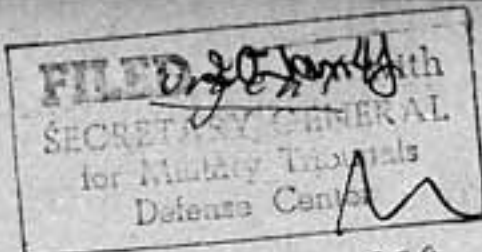 FILED with
SECRETARY GENERAL
for Military Tribunals
Defense Center